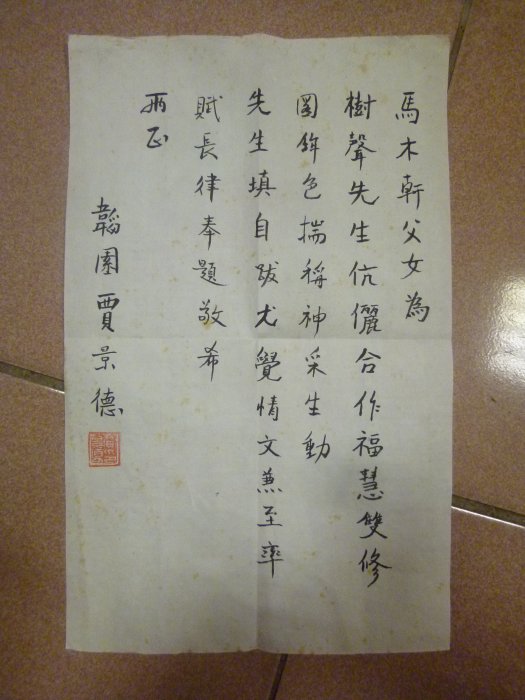 馬木軒父女為
樹聲先生伉儷合作福慧雙修
圖鉾色揣稱神采生動
先生填自跋尤覺情文兼至率
賦長律奉題敬希
兩正
韜園賈景德